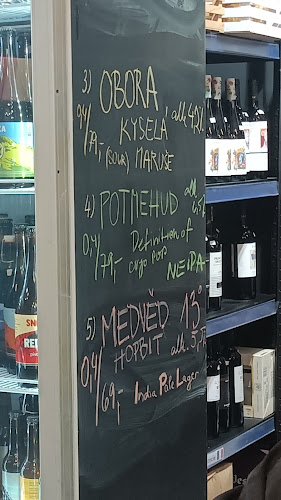 3) OBORA
0,4/79,- KYSELA alk. 4,5%
(SOUR) MARUŠE
4) POTMEHUD alk. 6,5%
0,4/79,- Definition of
NEIPA
5) MEDVĚD 13°
0,4/69,- HOPBIT alk.
India Pale Lager